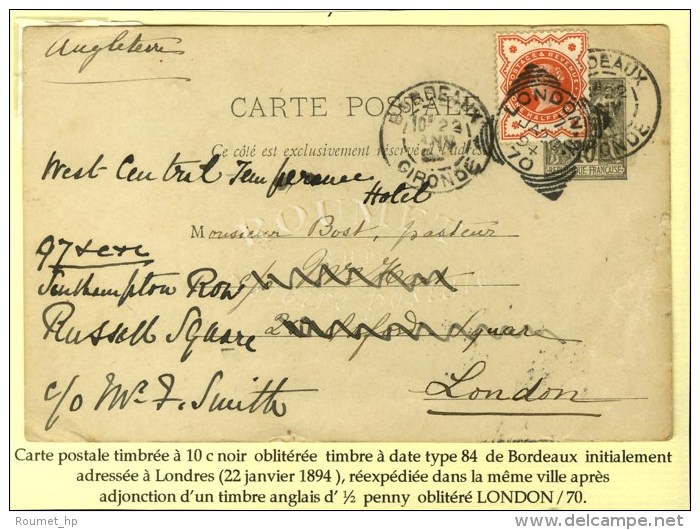 Angleterre
CARTE POSTALE
Ce côté est exclusivement réservé à l'adresse
BORDEAUX
10E 22
JANV
GIRONDE
POSTAGE & REVENUE
HALFPENNY
LONDON
JA
94
70
BORDEAUX
GIRONDE
10
REPUBLIQUE FRANÇAISE
West Central Temperance
Hotel
ROUMET
Monsieur Bost, pasteur
97 &c &c
Southampton Row
Russell Square
Square
c/o Mr. F. Smith
London
Carte postale timbrée à 10 c noir oblitérée timbre à date type 84 de Bordeaux initialement
adressée à Londres (22 janvier 1894 ), réexpédiée dans la même ville après
adjonction d'un timbre anglais d' ½ penny oblitéré LONDON / 70.
Roumet_hp
delcampe.net